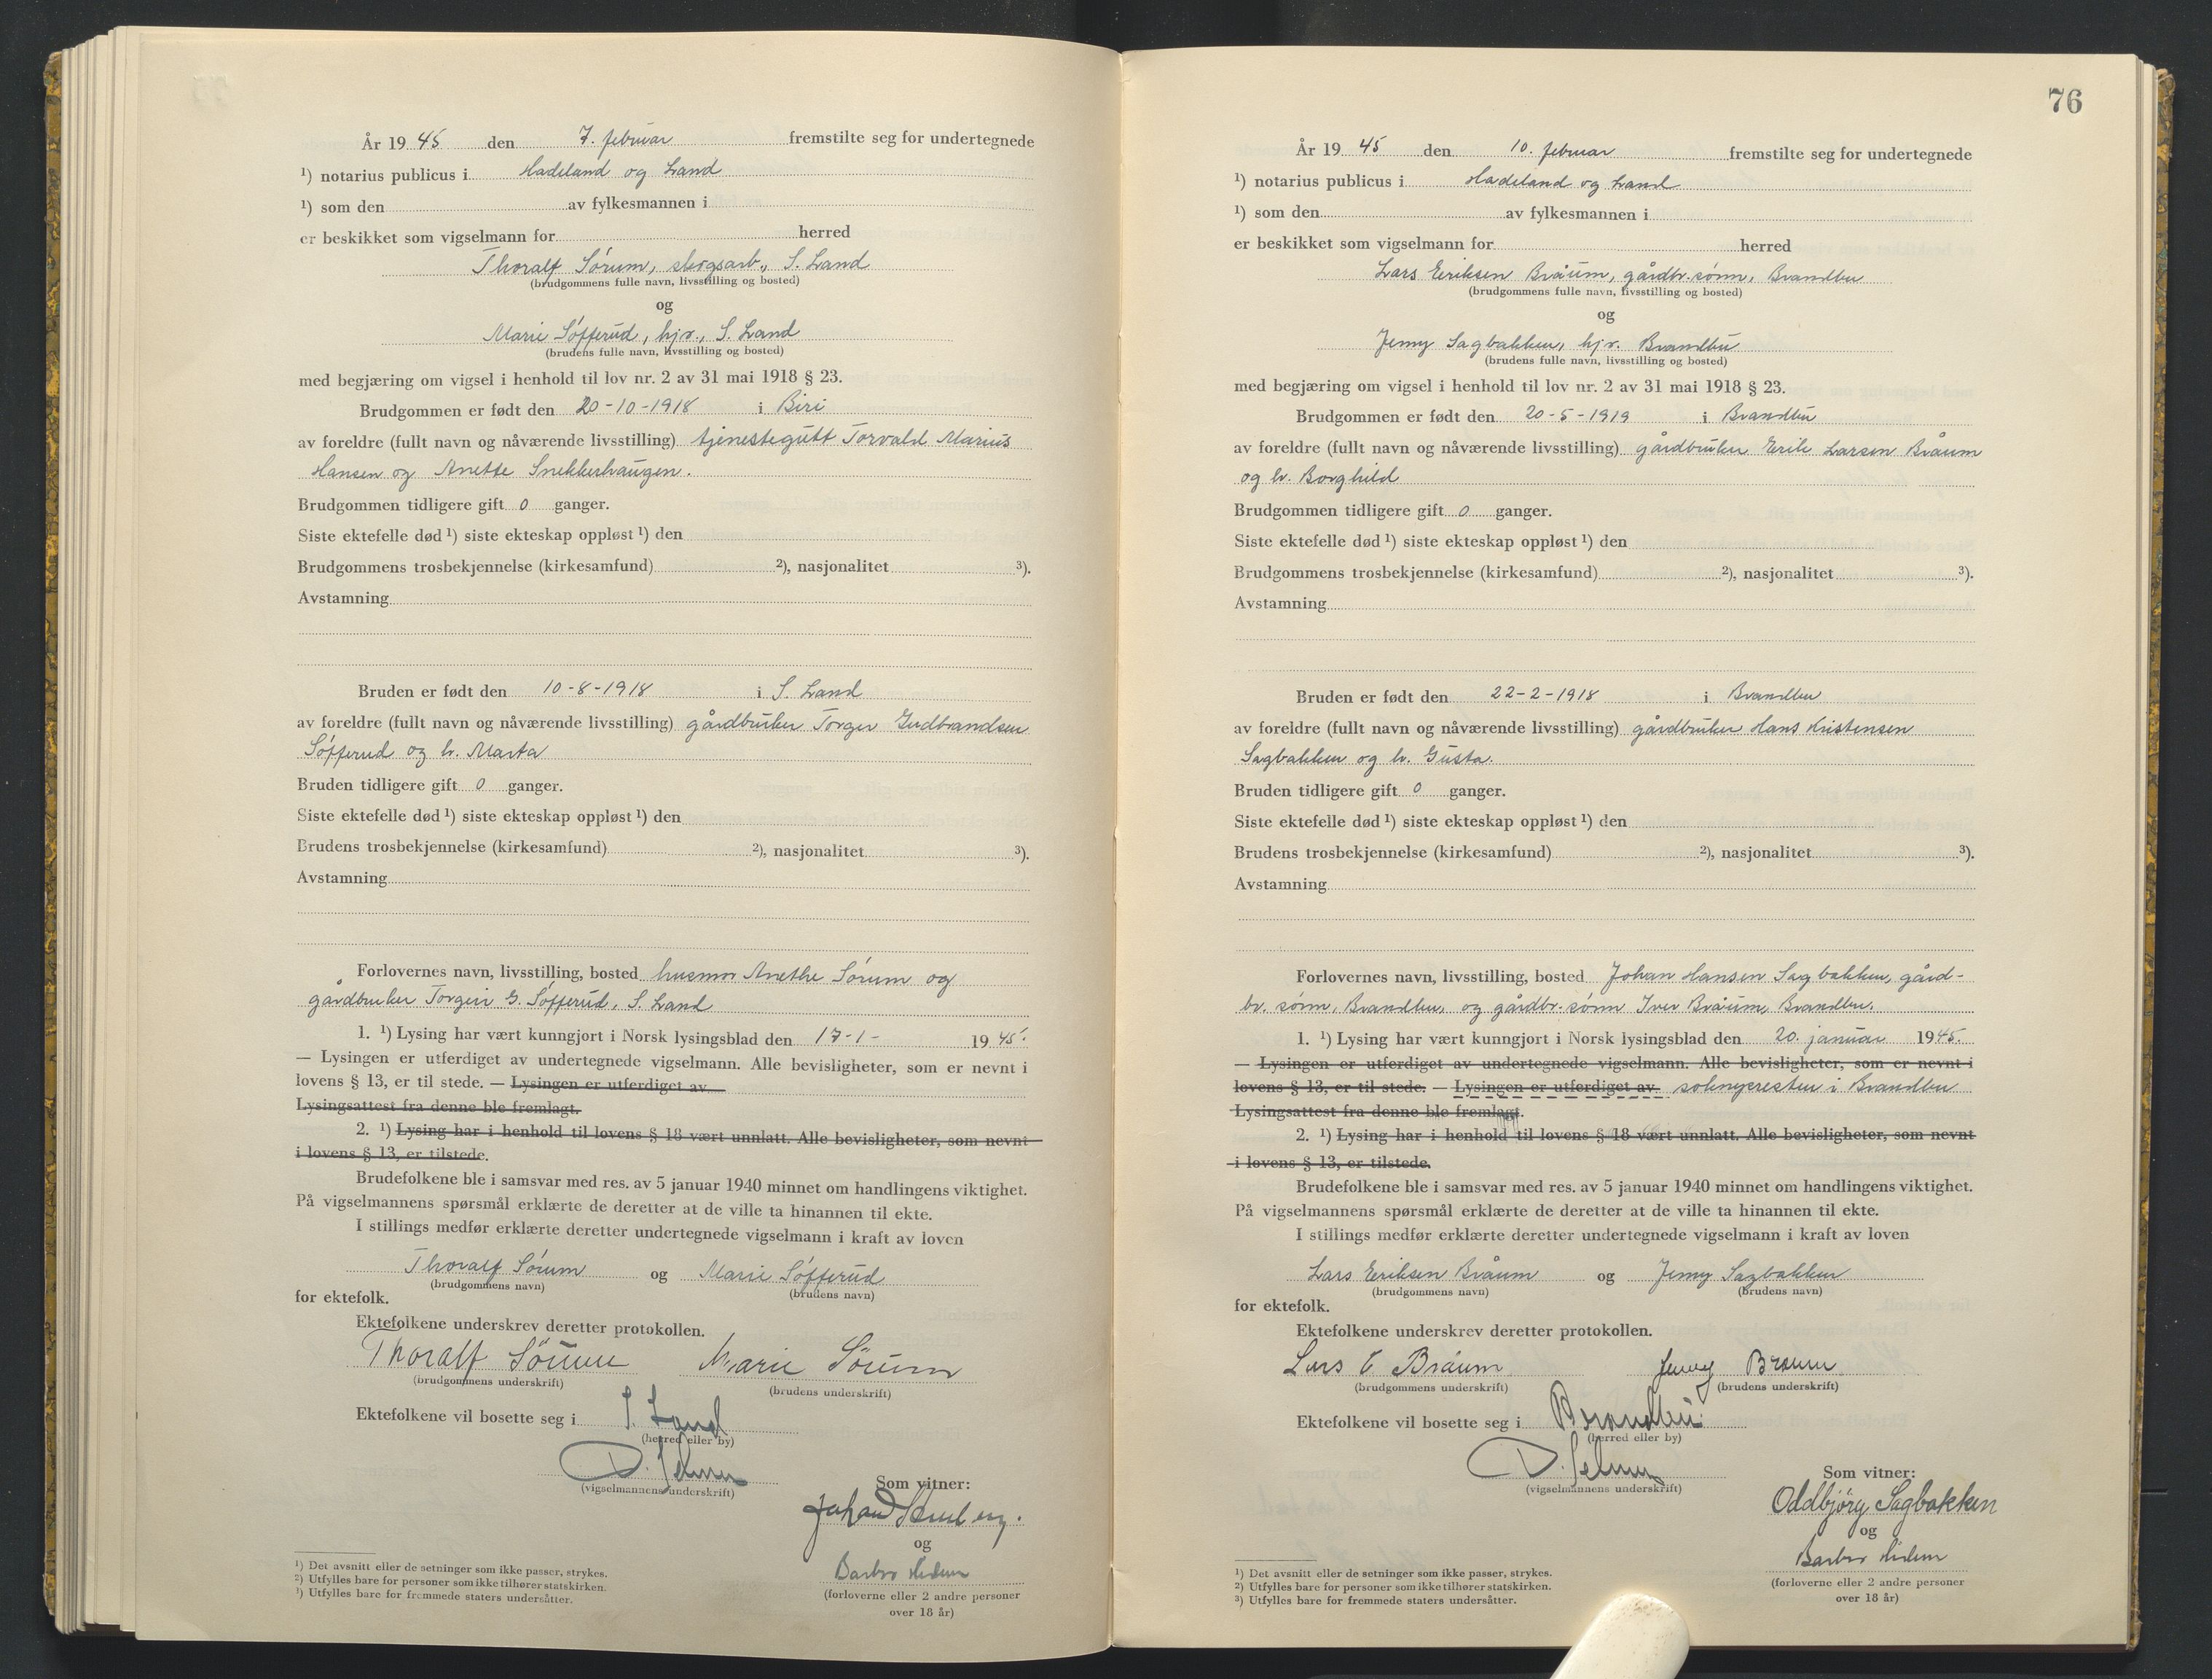 År 19 45 den 7. februar fremstilte seg for undertegnede
¹) notarius publicus i Hadeland og Land
¹) som den av fylkesmannen i
er beskikket som vigselmann for herred
Thoralf Sórum, skogsarb., S. Land
(brudgommens fulle navn, livsstilling og bosted)
og
Marie Sófferud, hjv., S. Land
(brudens fulle navn, livsstilling og bosted)
med begjæring om vigsel i henhold til lov nr. 2 av 31 mai 1918 § 23.
Brudgommen er født den 20-10-1918 i Biri
av foreldre (fullt navn og nåværende livsstilling) tjenestegutt Torvald Marius
Hansen og Anette Snekkerhaugen.
Brudgommen tidligere gift 0 ganger.
Siste ektefelle død ¹) siste ekteskap oppløst ¹) den
Brudgommens trosbekjennelse (kirkesamfund) ²), nasjonalitet ³).
Avstamning
Bruden er født den 10-8-1918 i S. Land
av foreldre (fullt navn og nåværende livsstilling) gårdbruker Torger Gudbrandsen
Sófferud og h. Marta
Bruden tidligere gift 0 ganger.
Siste ektefelle død ¹) siste ekteskap oppløst ¹) den
Brudens trosbekjennelse (kirkesamfund) ²), nasjonalitet ³).
Avstamning
Forlovernes navn, livsstilling, bosted husmor Anethe Sórum og
gårdbruker Torgeir G. Sófferud, S. Land
1. ¹) Lysing har vært kunngjort i Norsk lysingsblad den 17-1- 19 45.
— Lysingen er utferdiget av undertegnede vigselmann. Alle bevisligheter, som er nevnt i
lovens § 13, er til stede. — Lysingen er utferdiget av
Lysingsattest fra denne ble fremlagt.
2. ¹) Lysing har i henhold til lovens § 18 vært unnlatt. Alle bevisligheter, som nevnt
i lovens § 13, er tilstede.
Brudefolkene ble i samsvar med res. av 5 januar 1940 minnet om handlingens viktighet.
På vigselmannens spørsmål erklærte de deretter at de ville ta hinannen til ekte.
I stillings medfør erklærte deretter undertegnede vigselmann i kraft av loven
Thoralf Sórum og Marie Sófferud
(brudgommens navn) (brudens navn)
for ektefolk.
Ektefolkene underskrev deretter protokollen.
Thoralf Sörum Marie Sörum
(brudgommens underskrift) (brudens underskrift)
Ektefolkene vil bosette seg i S. Land
(herred eller by)
D.
(vigselmannens underskrift)
Som vitner:
Johan
og
Barbro
(forloverne eller 2 andre personer
over 18 år)
¹) Det avsnitt eller de setninger som ikke passer, strykes.
²) Utfylles bare for personer som ikke tilhører statskirken.
³) Utfylles bare for fremmede staters undersåtter.
76
År 19 45 den 10. februar fremstilte seg for undertegnede
¹) notarius publicus i Hadeland og Land
¹) som den av fylkesmannen i
er beskikket som vigselmann for herred
Lars Eriksen Bråum, gårdbr.sónn, Brandbu
(brudgommens fulle navn, livsstilling og bosted)
og
Jenny Sagbakken, hjv. Brandbu
(brudens fulle navn, livsstilling og bosted)
med begjæring om vigsel i henhold til lov nr. 2 av 31 mai 1918 § 23.
Brudgommen er født den 20-5-1919 i Brandbu
av foreldre (fullt navn og nåværende livsstilling) gårdbruker Erik Larsen Bråum
og h. Borghild
Brudgommen tidligere gift 0 ganger.
Siste ektefelle død ¹) siste ekteskap oppløst ¹) den
Brudgommens trosbekjennelse (kirkesamfund) ²), nasjonalitet ³).
Avstamning
Bruden er født den 22-2-1918 i Brandbu
av foreldre (fullt navn og nåværende livsstilling) gårdbruker Hans Kristensen
Sagbakken og h. Gusta.
Bruden tidligere gift 0 ganger.
Siste ektefelle død ¹) siste ekteskap oppløst ¹) den
Brudens trosbekjennelse (kirkesamfund) ²), nasjonalitet ³).
Avstamning
Forlovernes navn, livsstilling, bosted Johan Hansen Sagbakken, gård-
br. sónn, Brandbu, og gårdbr. sónn Iver Bråum, Brandbu.
1. ¹) Lysing har vært kunngjort i Norsk lysingsblad den 20. januar 1945.
— Lysingen er utferdiget av undertegnede vigselmann. Alle bevisligheter, som er nevnt i
lovens § 13, er til stede. — Lysingen er utferdiget av soknepresten i Brandbu
Lysingsattest fra denne ble fremlagt.
2. ¹) Lysing har i henhold til lovens § 18 vært unnlatt. Alle bevisligheter, som nevnt
i lovens § 13, er tilstede.
Brudefolkene ble i samsvar med res. av 5 januar 1940 minnet om handlingens viktighet.
På vigselmannens spørsmål erklærte de deretter at de ville ta hinannen til ekte.
I stillings medfør erklærte deretter undertegnede vigselmann i kraft av loven
Lars Eriksen Bråum og Jenny Sagbakken
(brudgommens navn) (brudens navn)
for ektefolk.
Ektefolkene underskrev deretter protokollen.
Lars E Bråum Jenny Bråum
(brudgommens underskrift) (brudens underskrift)
Ektefolkene vil bosette seg i Brandbu
(herred eller by)
D.
(vigselmannens underskrift)
Som vitner:
Oddbjörg Sagbakken
og
Barbro
(forloverne eller 2 andre personer
over 18 år)
¹) Det avsnitt eller de setninger som ikke passer, strykes.
²) Utfylles bare for personer som ikke tilhører statskirken.
³) Utfylles bare for fremmede staters undersåtter.